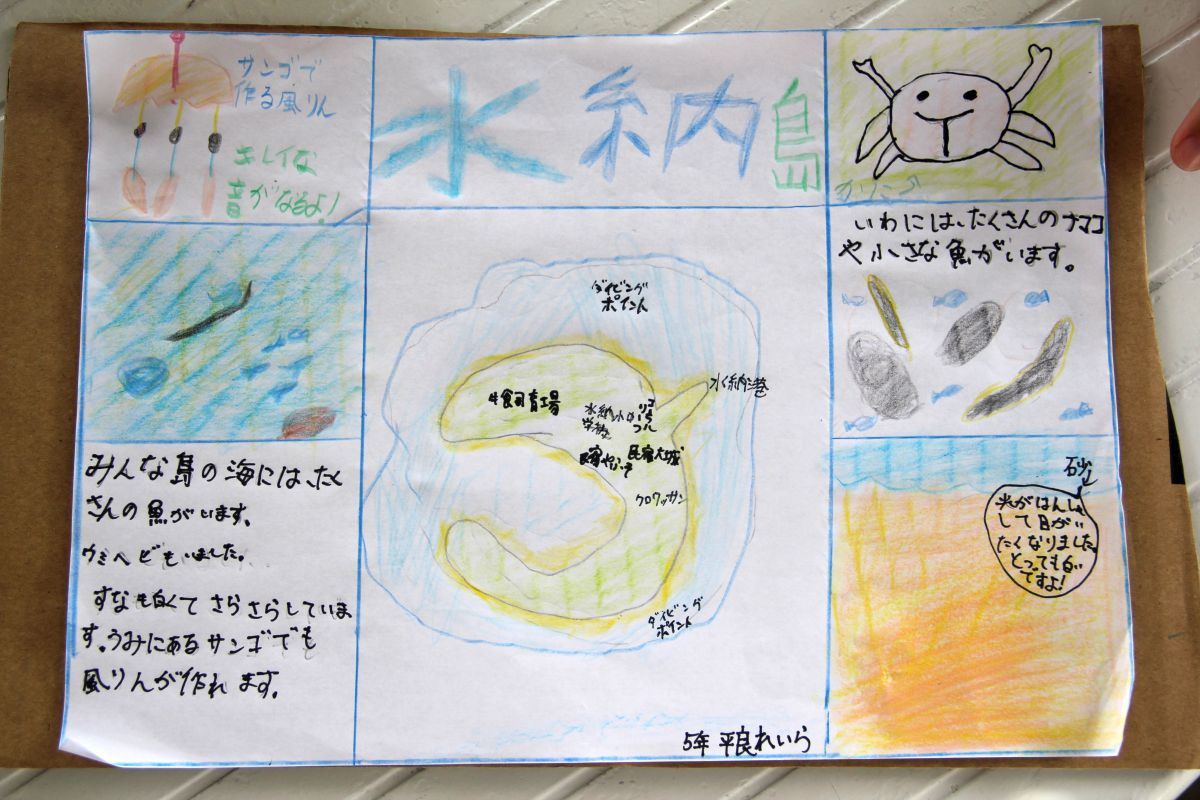 サンゴで
作る風りん
キレイな
音がなるよ!
水納島
かに
いわには、たくさんのナマコ
や小さな魚がいます。
みんな島の海には、たく
さんの魚がいます。
ウミヘビもいました。
すなも白くてさらさらしていま
す。うみにあるサンゴでも
風りんが作れます。
ダイビング
ポイント
水納港
牛飼育場
水納小
学校
コーラル
民宿大城
クロワッサン
ダイビング
ポイント
5年 平良れいら
砂
光がはんしゃ
して目がい
たくなりました。
とっても白い
ですよ!